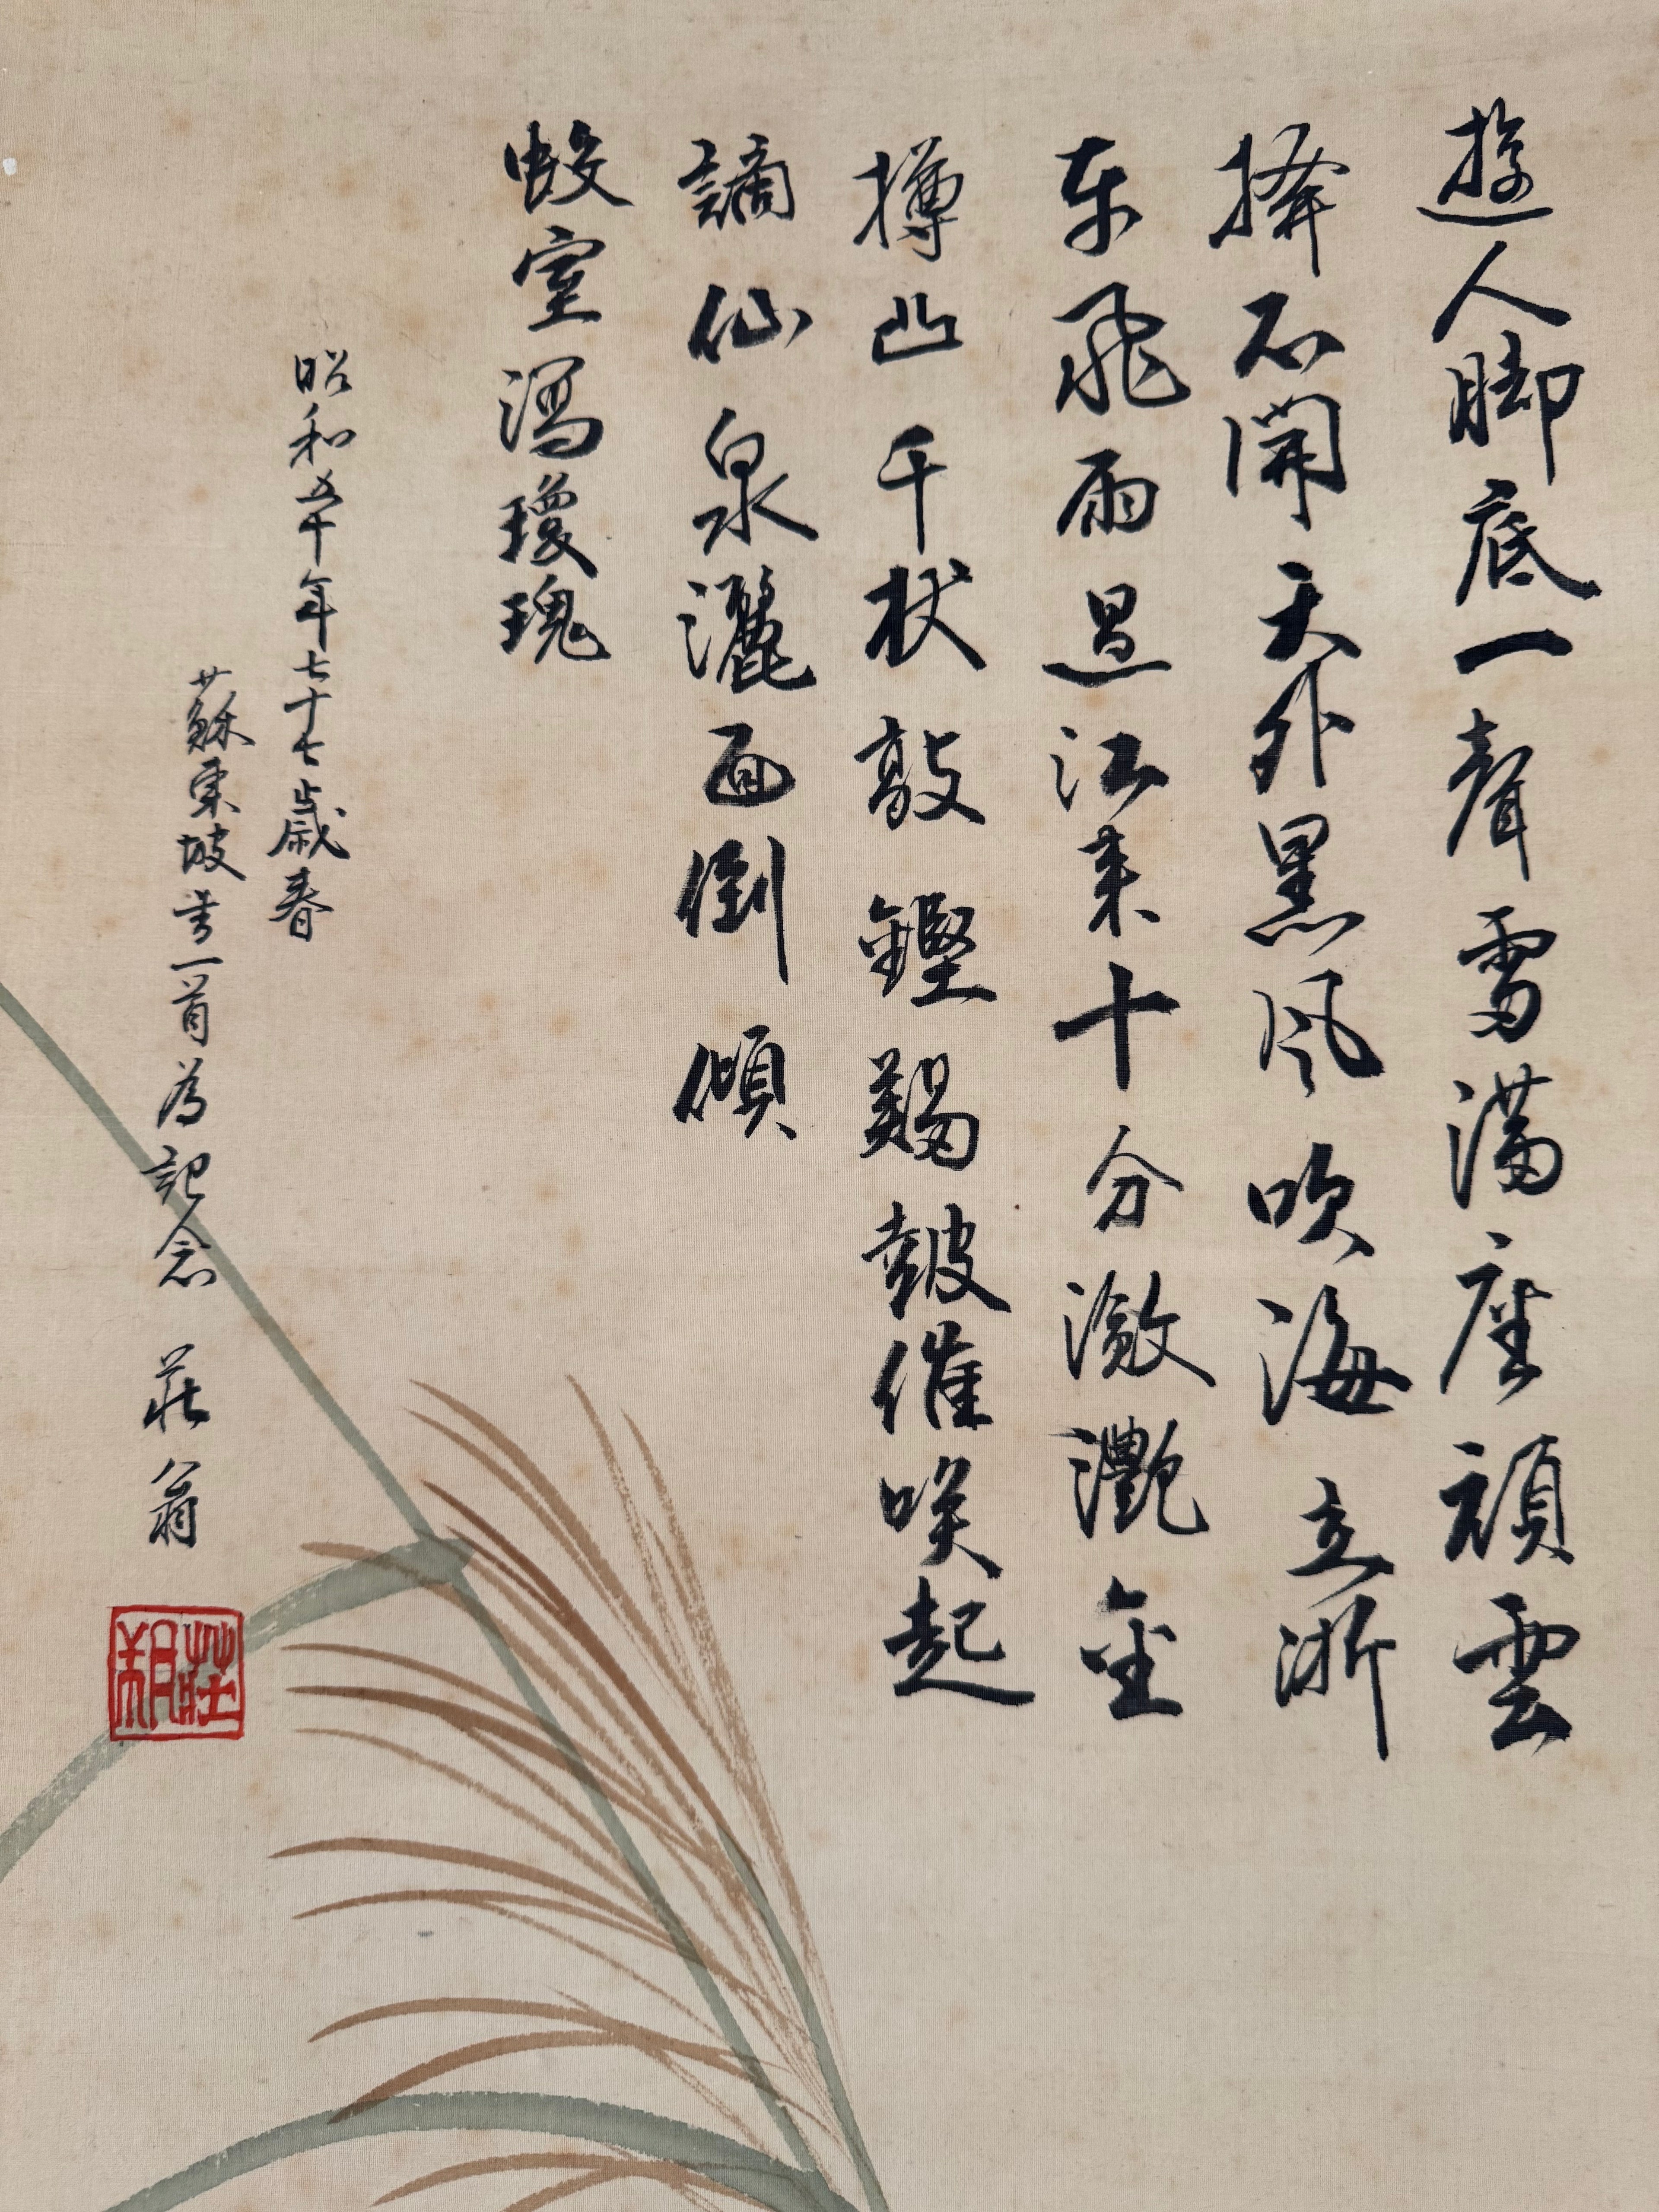 遊人脚底一聲雷滿座頑雲
撥不開天外黑風吹海立浙
東飛雨過江來十分瀲灔金
樽凸千杖敲鏗羯鼓催喚起
謫仙泉灑面倒傾
鮫室瀉瓊瑰
昭和五十年七十七歳春
蘇東坡書一首為記念 莊翁